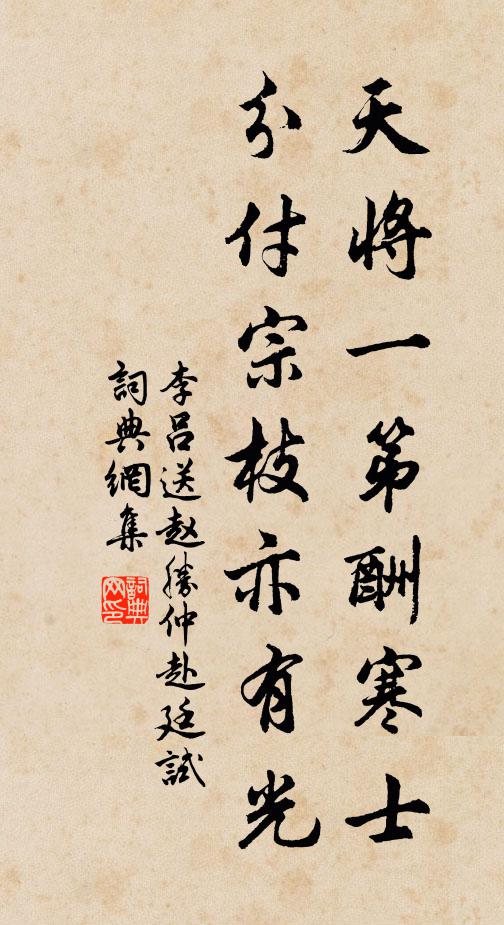 天將一第酬寒士
分付宗枝亦有光
李呂送赵勝仲赴廷試
詞典網集
詞典網印